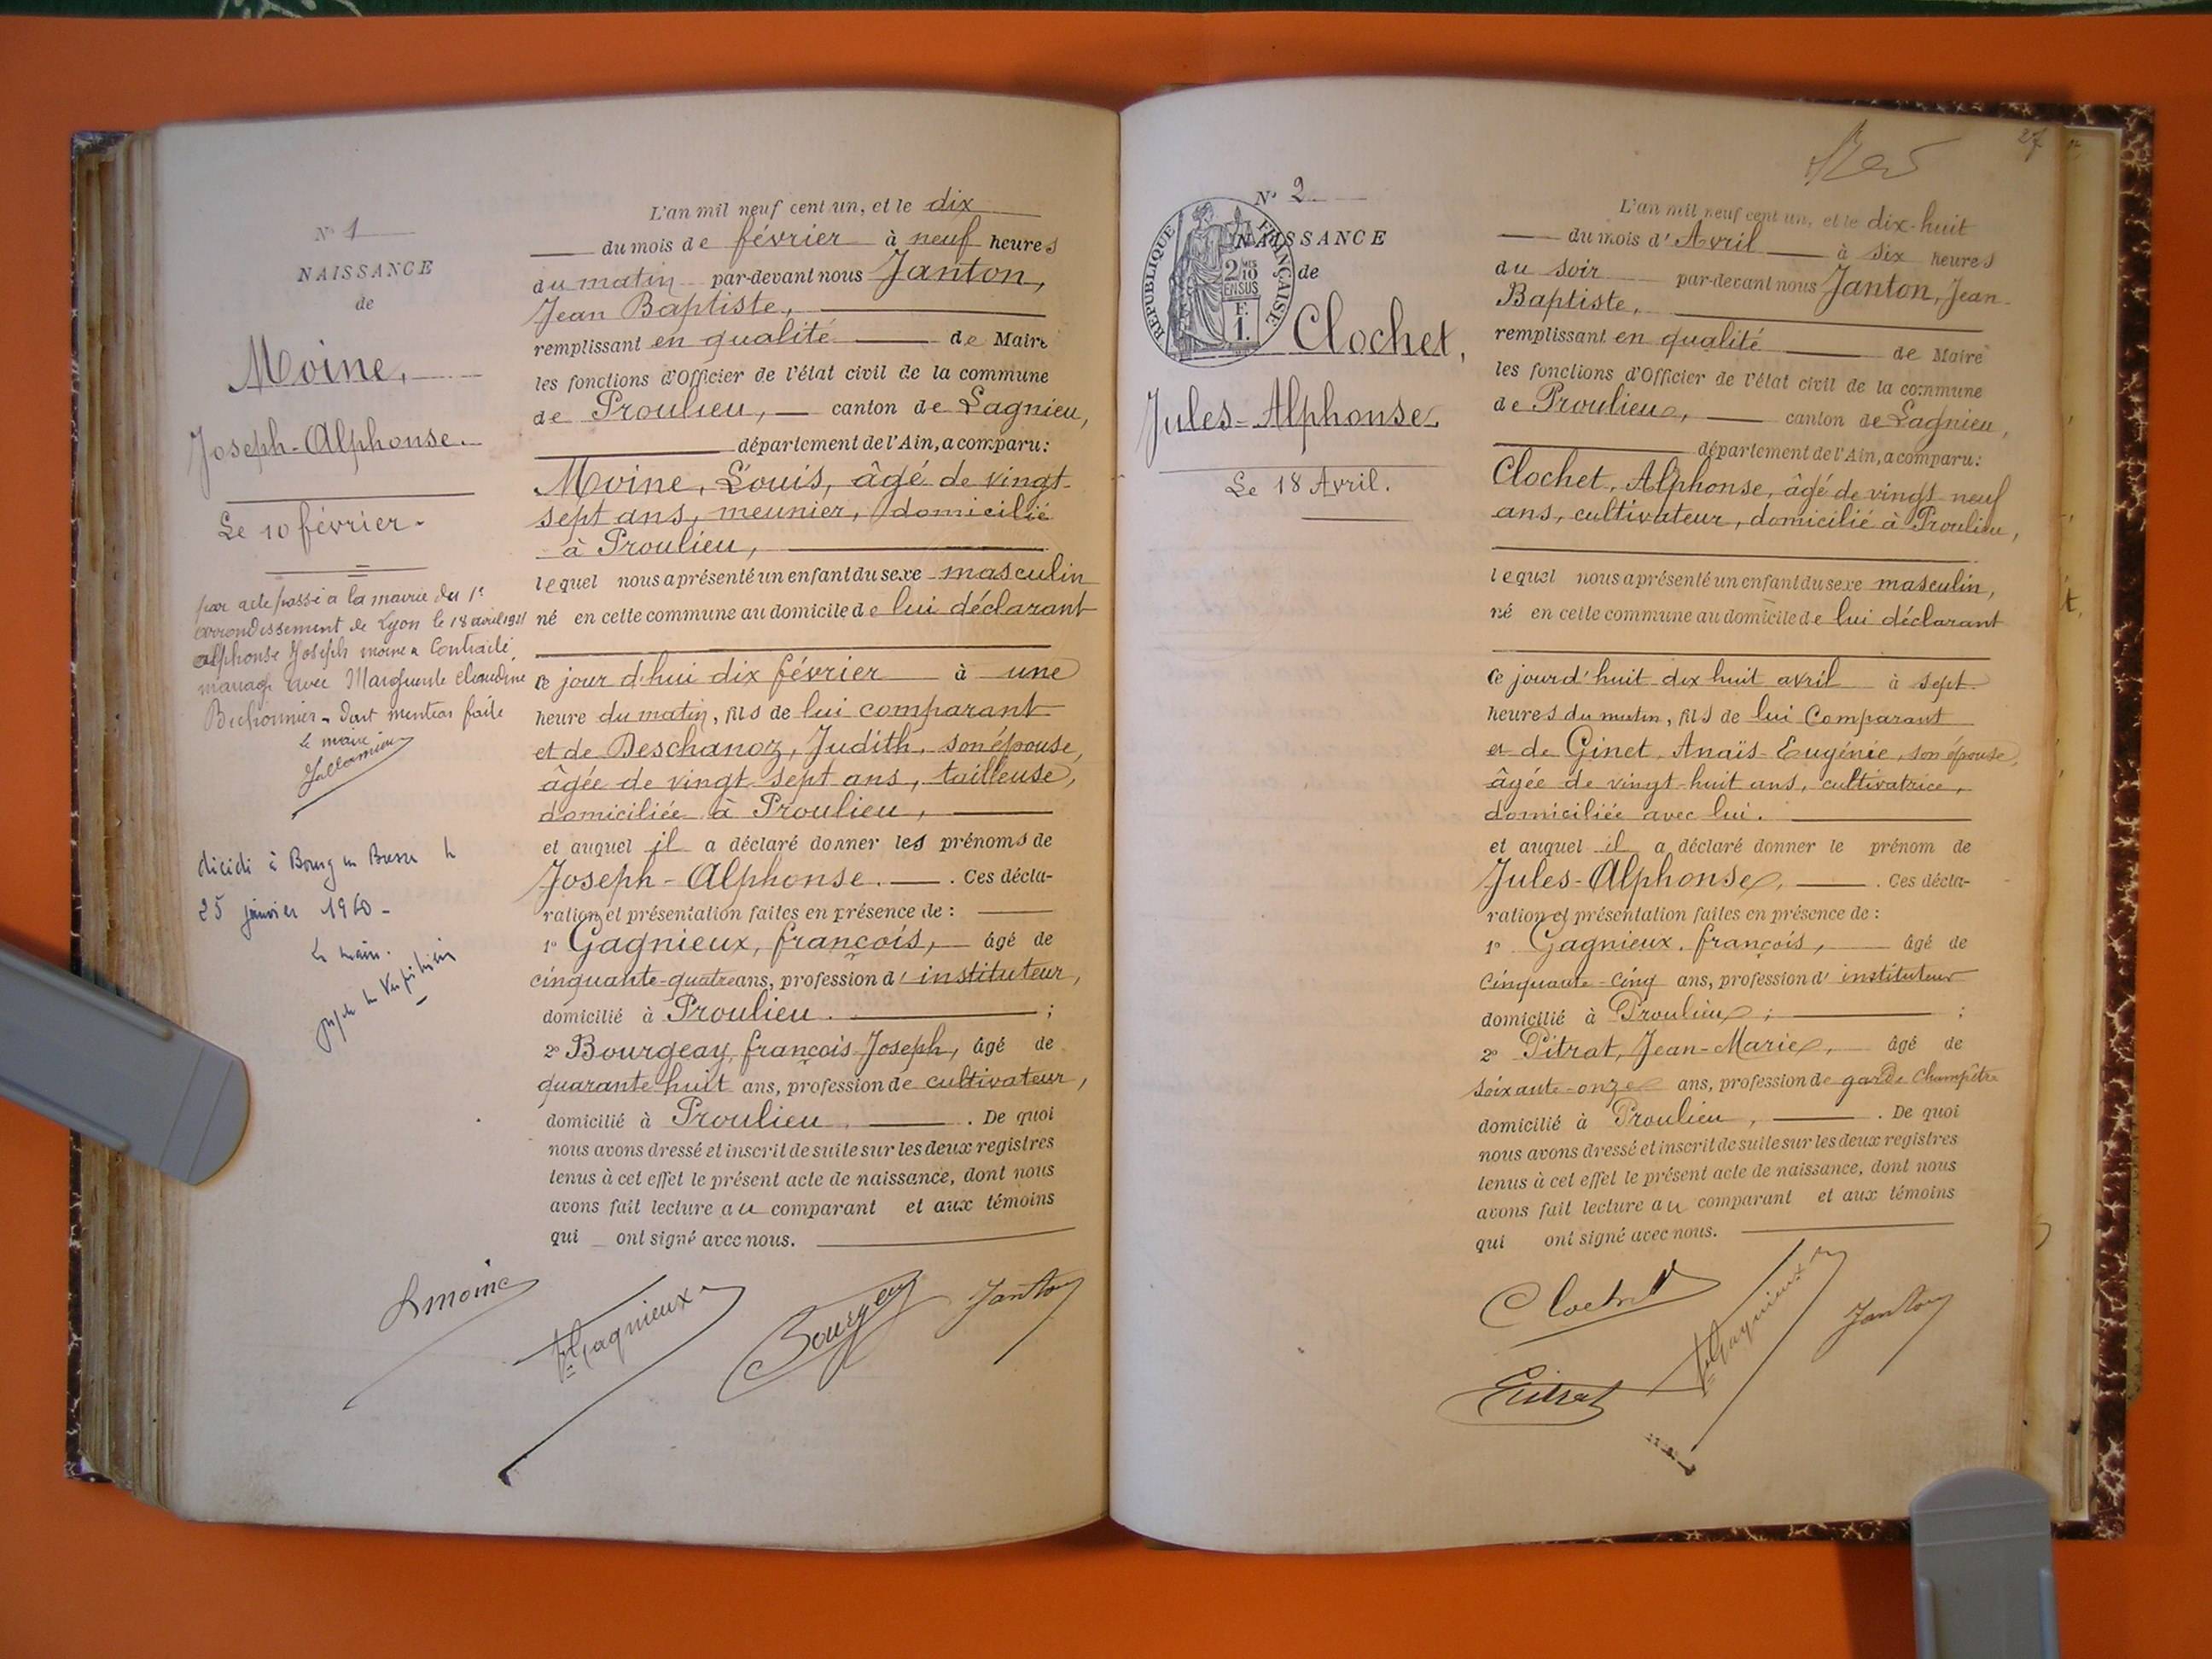 N° 1
NAISSANCE
de
Moine,
Joseph-Alphonse.
Le 10 février.
par acte passé à la mairie du 1e
arrondissement de Lyon le 18 avril
alphonse Joseph moine a Contracté
mariage avec Marguerite claudine
dont mention faite
le maire
décédé à Bourg en Bresse le
25 janvier 1960 -
Le maire.
L'an mil neuf cent un, et le dix
du mois de février à neuf heures
du matin par-devant nous Janton,
Jean Baptiste,
remplissant en qualité de Maire
les fonctions d'Officier de l'état civil de la commune
de Proulieu, canton de Lagnieu,
département de l'Ain, a comparu:
Moine, Louis, âgé de vingt-
sept ans, meunier, domicilié
à Proulieu,
lequel nous a présenté un enfant du sexe masculin
né en cette commune au domicile de lui déclarant
ce jour d'hui dix février à une
heure du matin, fils de lui comparant
et de Deschanoz, Judith, son épouse,
âgée de vingt-sept ans, tailleuse,
domiciliée à Proulieu,
et auquel il a déclaré donner les prénoms de
Joseph-Alphonse. Ces décla-
ration et présentation faites en présence de :
1° Gagnieux, françois, âgé de
cinquante-quatre ans, profession d'instituteur,
domicilié à Proulieu. ;
2° Bourgeay, françois Joseph, âgé de
quarante huit ans, profession de cultivateur,
domicilié à Proulieu. De quoi
nous avons dressé et inscrit de suite sur les deux registres
tenus à cet effet le présent acte de naissance, dont nous
avons fait lecture au comparant et aux témoins
qui ont signé avec nous.
L moine
fs Gagnieux
Bourgeay
Janton
27
N° 2
NAISSANCE
de
RÉPUBLIQUE FRANÇAISE
2 MES
10
EN SUS
F.
1.
Clochet,
Jules-Alphonse
Le 18 Avril.
L'an mil neuf cent un, et le dix-huit
du mois d'Avril à six heures
du soir par-devant nous Janton, Jean-
Baptiste,
remplissant en qualité de Maire
les fonctions d'Officier de l'état civil de la commune
de Proulieu, canton de Lagnieu,
département de l'Ain, a comparu:
Clochet, Alphonse, âgé de vingt-neuf
ans, cultivateur, domicilié à Proulieu,
lequel nous a présenté un enfant du sexe masculin,
né en cette commune au domicile de lui déclarant
ce jourd'huit dix huit avril à sept
heures du matin, fils de lui Comparant
et de Ginet, Anaïs-Eugénie, son épouse,
âgée de vingt-huit ans, cultivatrice,
domiciliée avec lui.
et auquel il a déclaré donner le prénom de
Jules-Alphonse. Ces décla-
ration et présentation faites en présence de :
1° Gagnieux, françois, âgé de
Cinquante-Cinq ans, profession d'instituteur
domicilié à Proulieu ; ;
2° Pitrat, Jean-Marie, âgé de
soixante-onze ans, profession de garde Champêtre
domicilié à Proulieu, . De quoi
nous avons dressé et inscrit de suite sur les deux registres
tenus à cet effet le présent acte de naissance, dont nous
avons fait lecture au comparant et aux témoins
qui ont signé avec nous.
Clochet
fs Gagnieux
Janton
Pitrat